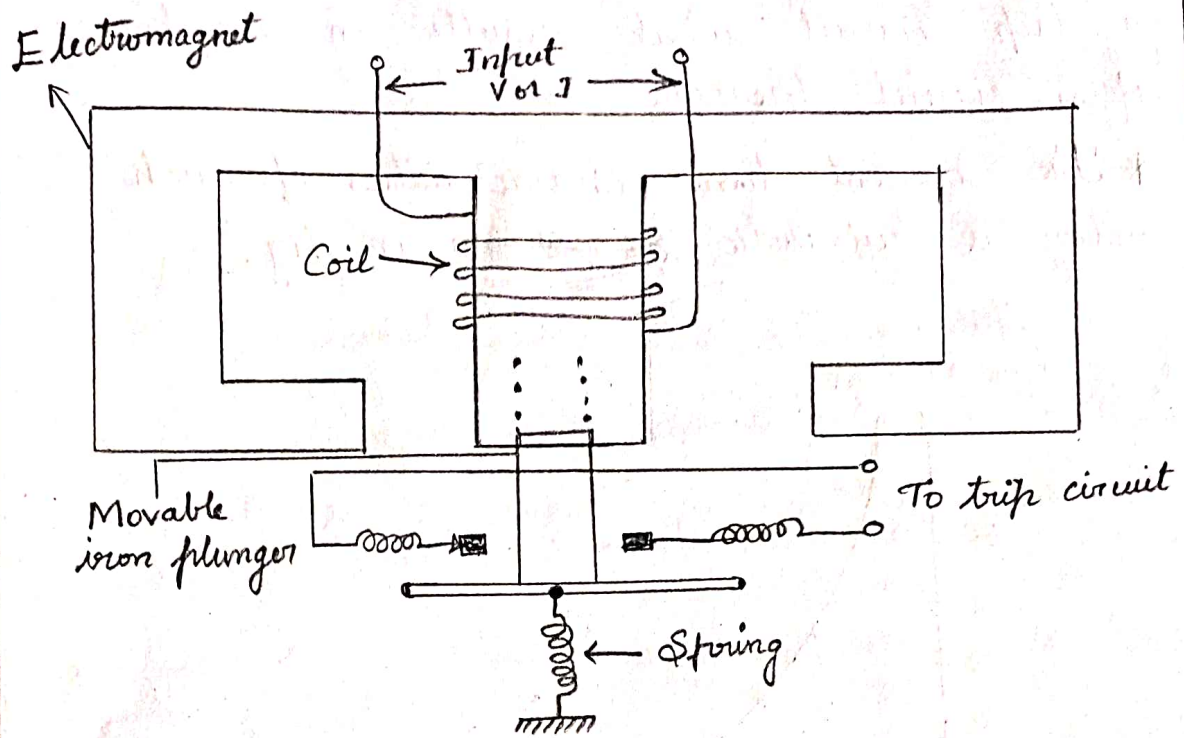 Electromagnet
Input
V or I
Coil
Movable
iron plunger
To trip circuit
Spring